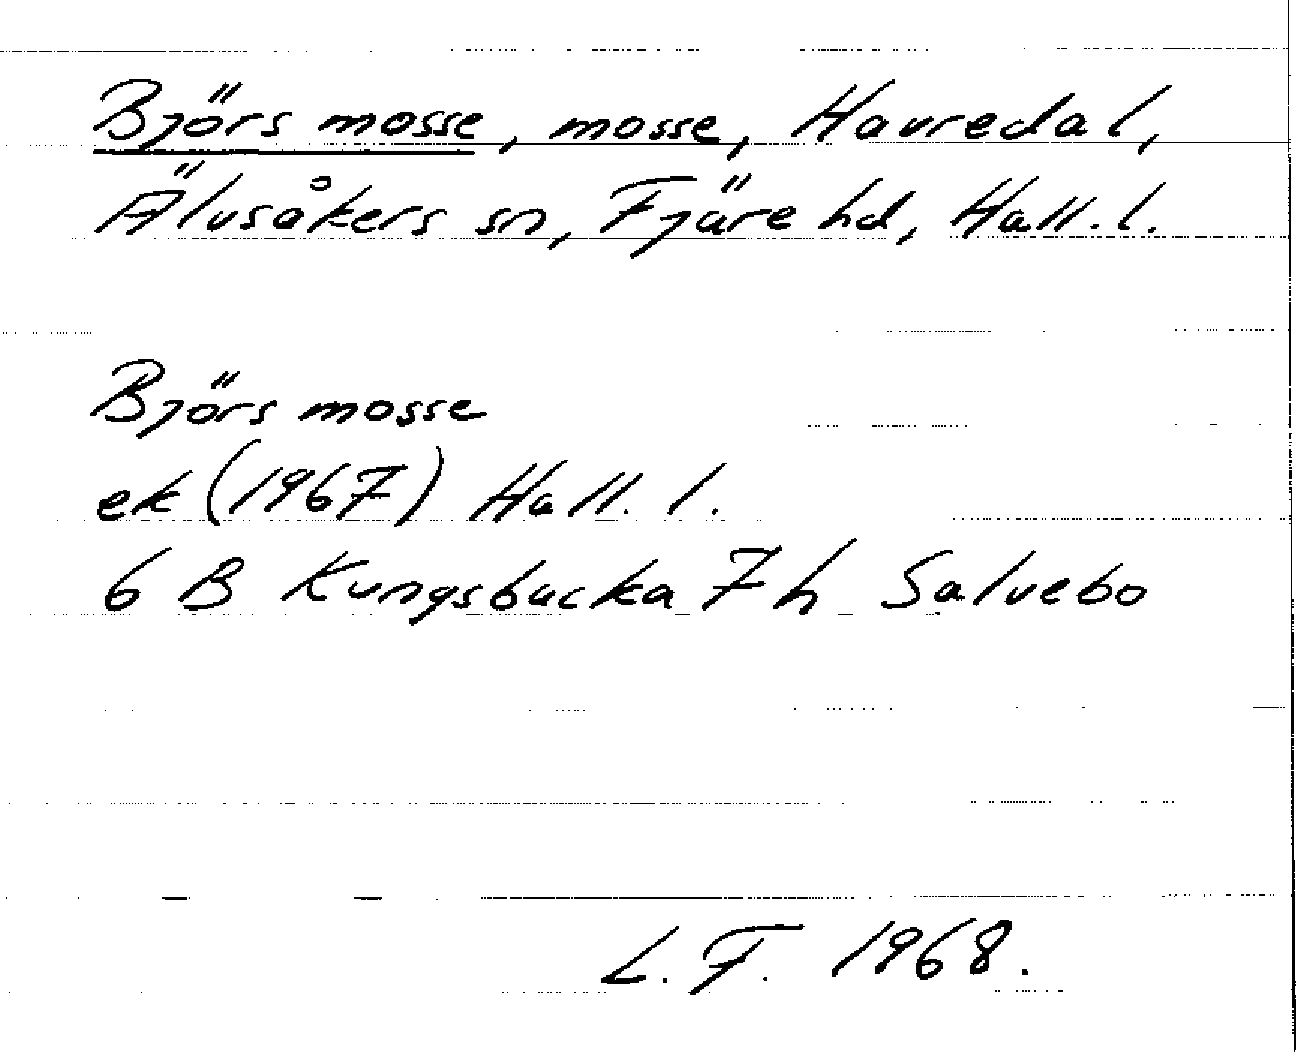 Björs mosse, mosse, Havredal,
Älvsåkers sn, Fjäre hd, Hall.l.
Björs mosse
ek (1967) Hall. l.
6 B Kungsbacka 7 h Salvebo
L. F. 1968.